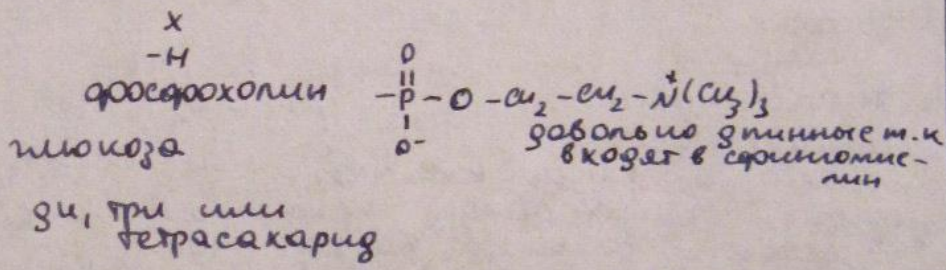 X
-H
фосфохолин
O
||
-P-O-CH₂-CH₂-N⁺(CH₃)₃
|
O⁻
довольно длинные т.к
входят в сфингомие-
лин
глюкоза
ди, три или
тетрасахарид